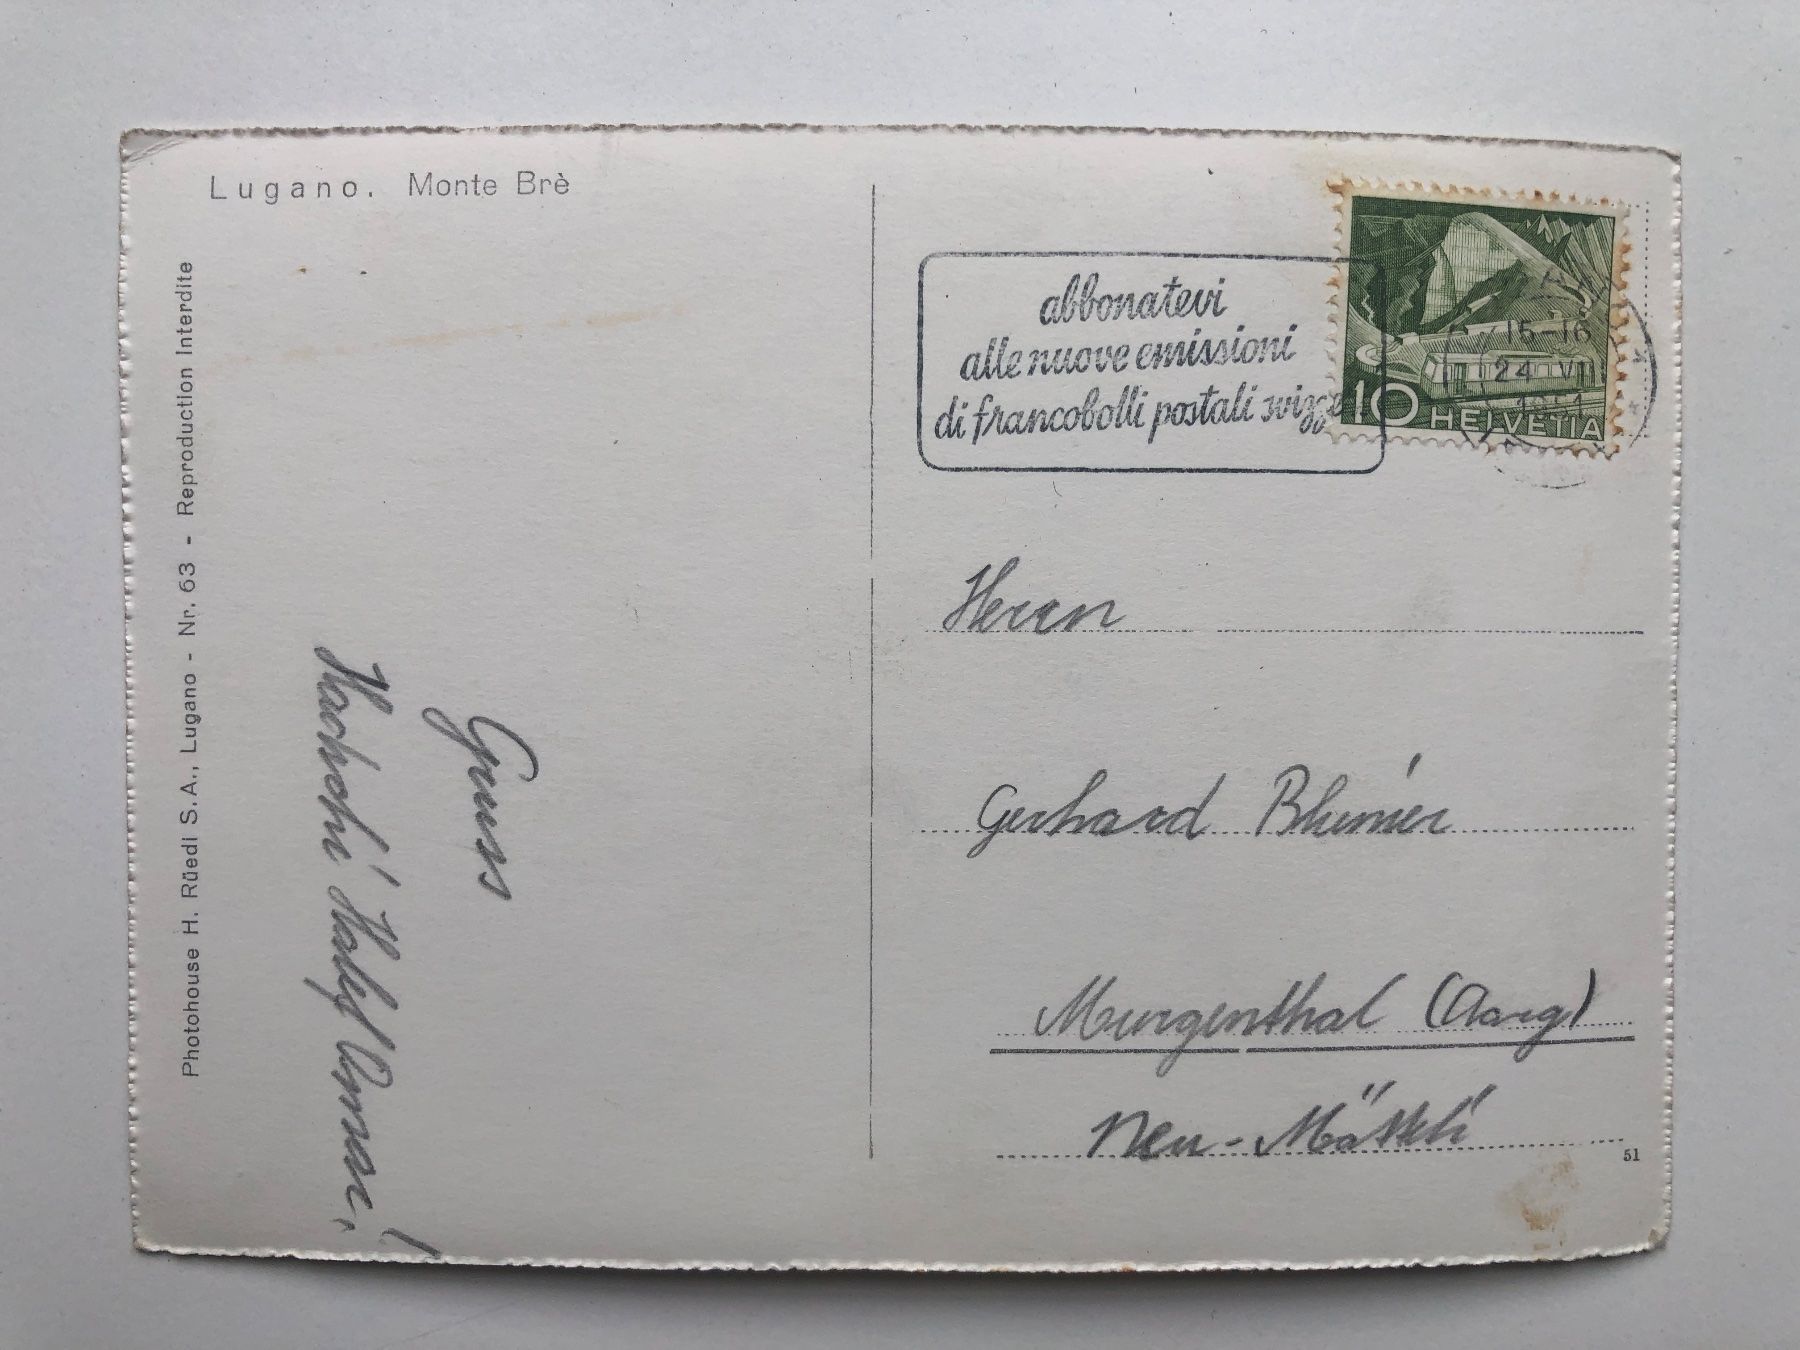 Lugano. Monte Brè
Photohouse H. Rüedi S.A., Lugano - Nr. 63 - Reproduction Interdite
abbonatevi
alle nuove emissioni
di francobolli postali svizze
15-16
24 VII
1951
10 HELVETIA
Gruss
Herrn
Gerhard Blumer
Murgenthal (Aarg)
Neu-Mättli
51